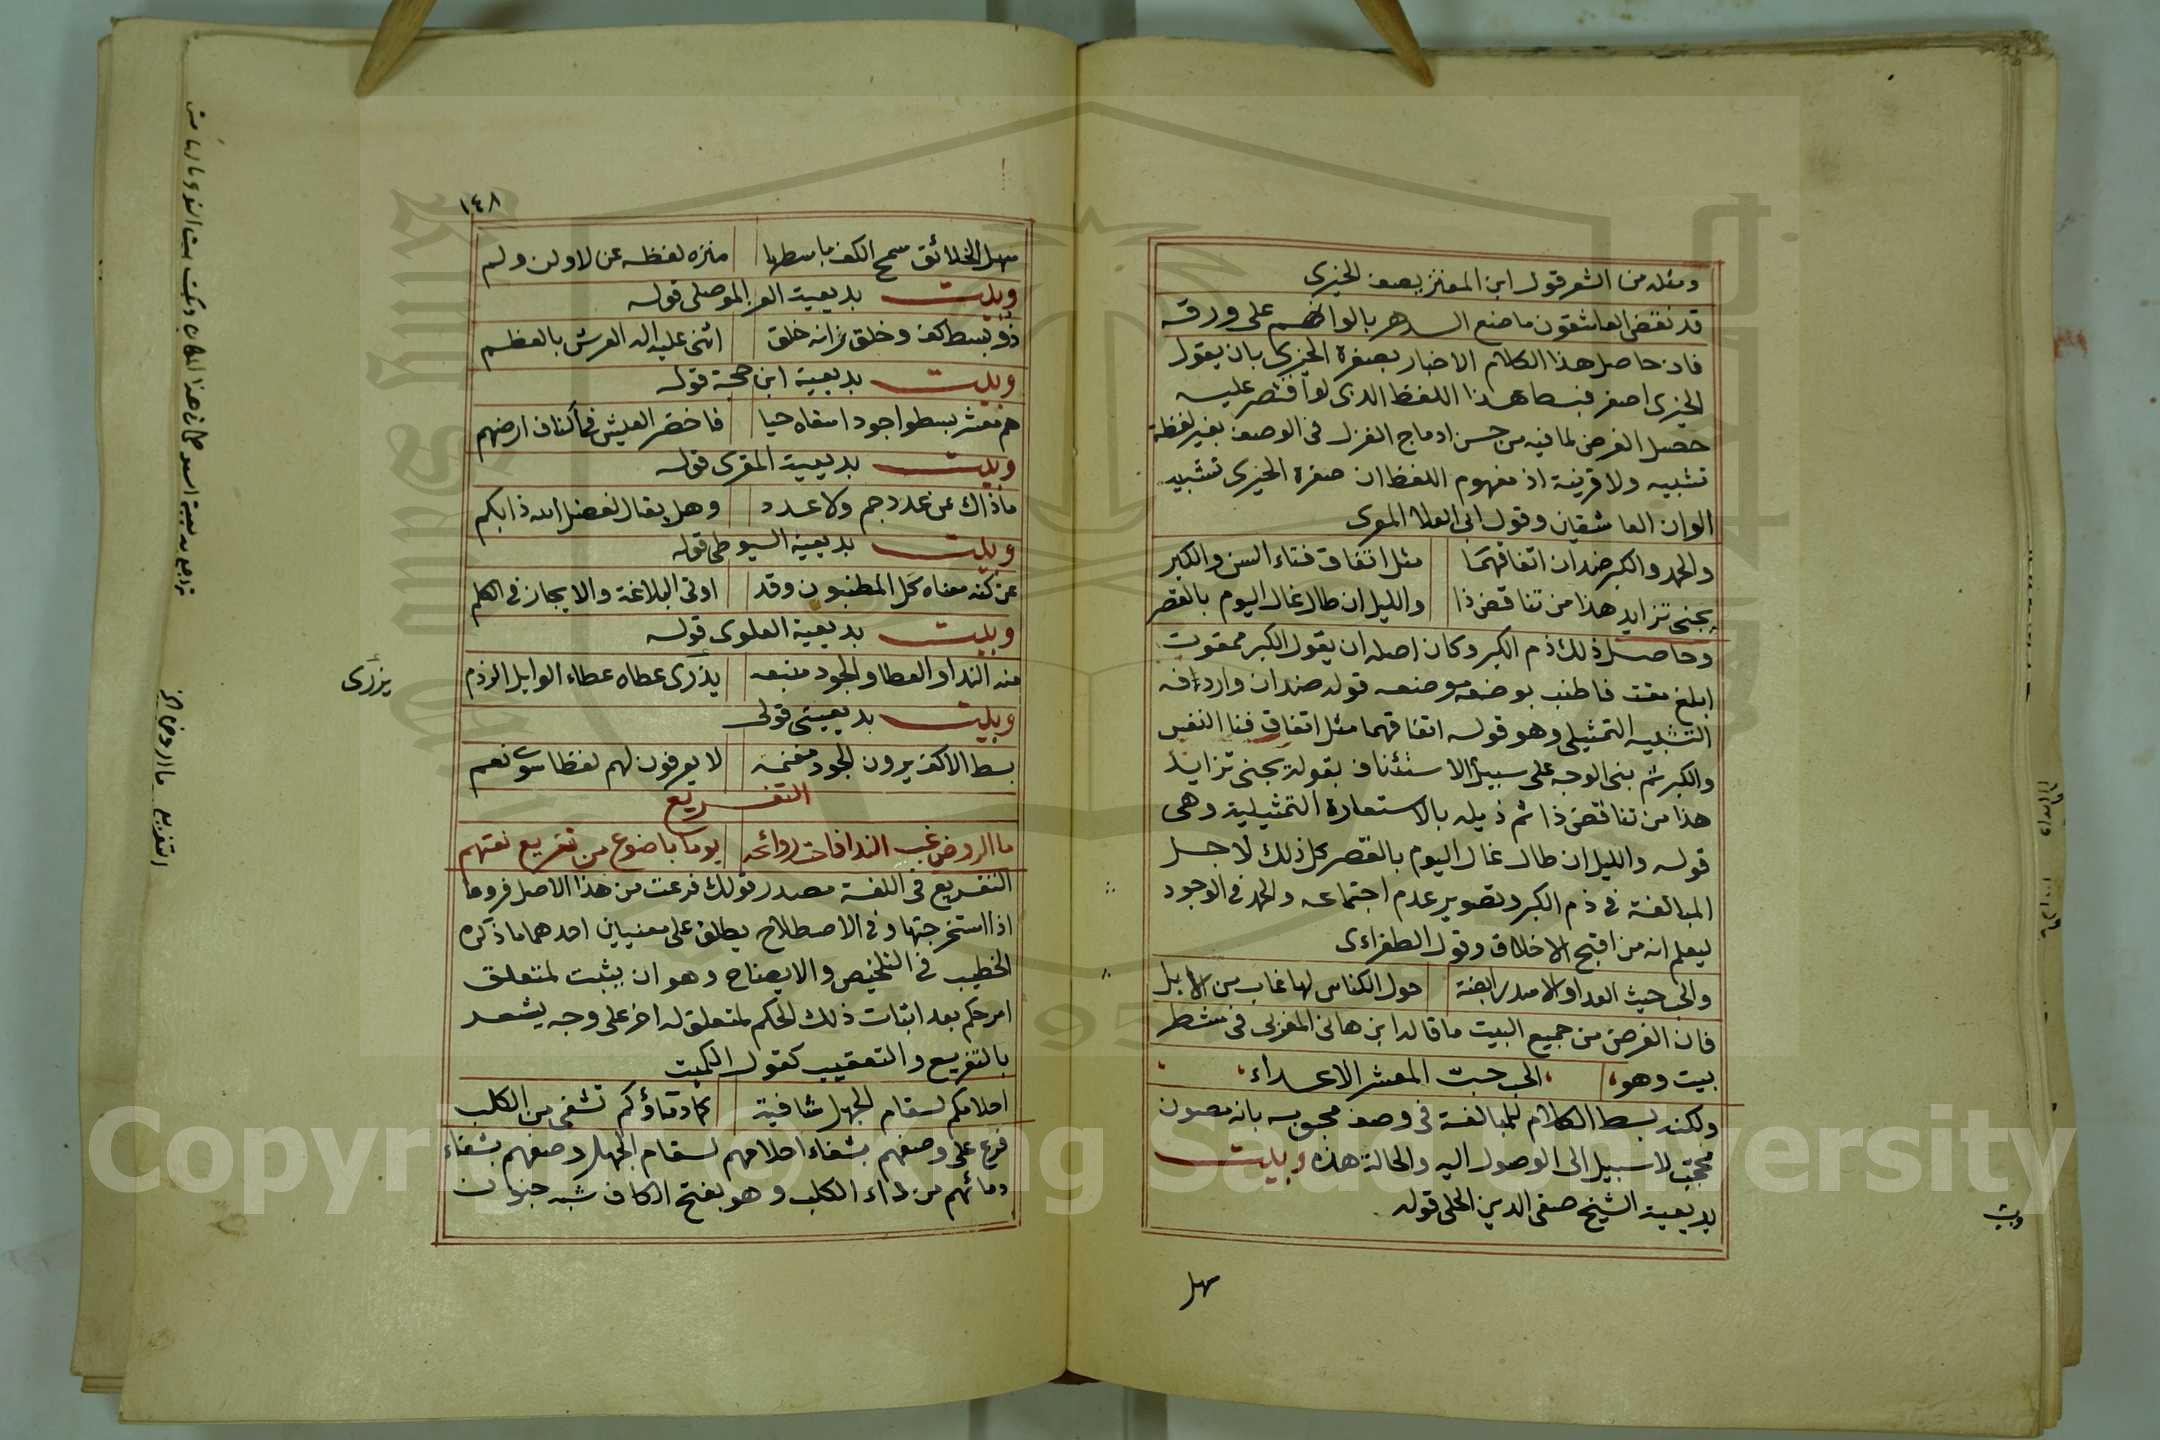 ومثله من الشعر قول ابن المعتز يصف الخيرى
قد نفض العاشقون ما صنع الدهر بالوانهم على ورقه
فان حاصل هذا الكلام الاخبار بصفرة الخيرى بان يقول
الخيرى اصفر فبسط هذا اللفظ الذى لو اقتصر عليه
حصل الغرض لما فيه من حسن ادماج الغزل فى الوصف بغير لفظة
تشبيه ولا قرينة اذ مفهوم اللفظ ان صفرة الخيرى تشبيه
الوان العاشقين وقول ابى العلا المعرى
والحمد والكبر ضدان اتفاقهما مثل اتفاق فتاء السن والكبر
يجنى تزايد هذا من تناقض ذا والليل ان طال غال اليوم بالقصر
وحاصل ذلك ذم الكبر وكان اصله ان يقول الكبر ممقوت
ابلغ مقت فاطنب بوضعه موضعه قوله ضدان واردافه
التشبيه التمثيلى وهو قوله اتفاقهما مثل اتفاق فتا النفس
والكبر ثم بنى الوجه على سبيل الاستئناف بقوله يجنى تزايد
هذا من تناقض ذا ثم ذيله بالاستعارة التمثيلية وهى
قوله والليل ان طال غال اليوم بالقصر كل ذلك لاجل
المبالغة فى ذم الكبر وتصوير عدم اجتماعه والحمد فى الوجود
ليعلم انه من اقبح الاخلاق وقول الطغراءى
والحب حيث العدا والاسد رابضة حول الكناس لها غاب من الاسل
فان الغرض من جميع البيت ما قاله ابن هانى المغربى فى شطر
بيت وهو الحب حيث المعشر الاعداء
ولكنه بسط الكلام للمبالغة فى وصف محبوبه بانه مصون
محجب لا سبيل الى الوصول اليه والحالة هذه وبيت
بديعية الشيخ صفى الدين الحلى قوله
سهل
وبيت
١٤٨
سهل الخلائق سمح الكف باسطها منزه لفظه عن لا ولن ولم
وبيت بديعية العز الموصلى قوله
ذو بسط كف وخلق زانه خلق اثنى عليه اله العرش بالعظم
وبيت بديعية ابن حجة قوله
هم معشر بسطوا جودا سقاه حيا فاخضر العيش فى اكناف ارضهم
وبيت بديعية المقرى قوله
ماذاك عن عدد جم ولا عدد وهل يقال لفضل الله ذا بكم
وبيت بديعية السيوطى قوله
عن كنه معناه كل المطنبون وقد اوتى البلاغة والايجاز فى الكلم
وبيت بديعية العلوى قوله
منه الندا والعطا والجود منبعه يذرى عطاه عطاء الوابل الرذم
يزرى
وبيت بديعيتى قولى
بسط الاكف يرون الجود مغنمة لا يعرفون لهم لفظا سوى نعم
التفريع
ما الروض غب الندا فاحت روائحه يوما باضوع من تفريع نعتهم
التفريع فى اللغة مصدر قولك فرعت من هذا الاصل فروعا
اذا استخرجتها وفى الاصطلاح يطلق على معنيين احدهما ما ذكره
الخطيب فى التلخيص والايضاح وهو ان يثبت لمتعلق
امر حكم بعد اثبات ذلك الحكم لمتعلق له اخر على وجه يشعر
بالتفريع والتعقيب كقول الكميت
احلامكم لسقام الجهل شافية كما دماؤكم تشفى من الكلب
فرع على وصفهم بشفاء احلامهم لسقام الجهل وصفهم بشفاء
دمائهم من داء الكلب وهو بفتح الكاف شبه جنون
التفريع ما الروض الخ
Copyright © King Saud University